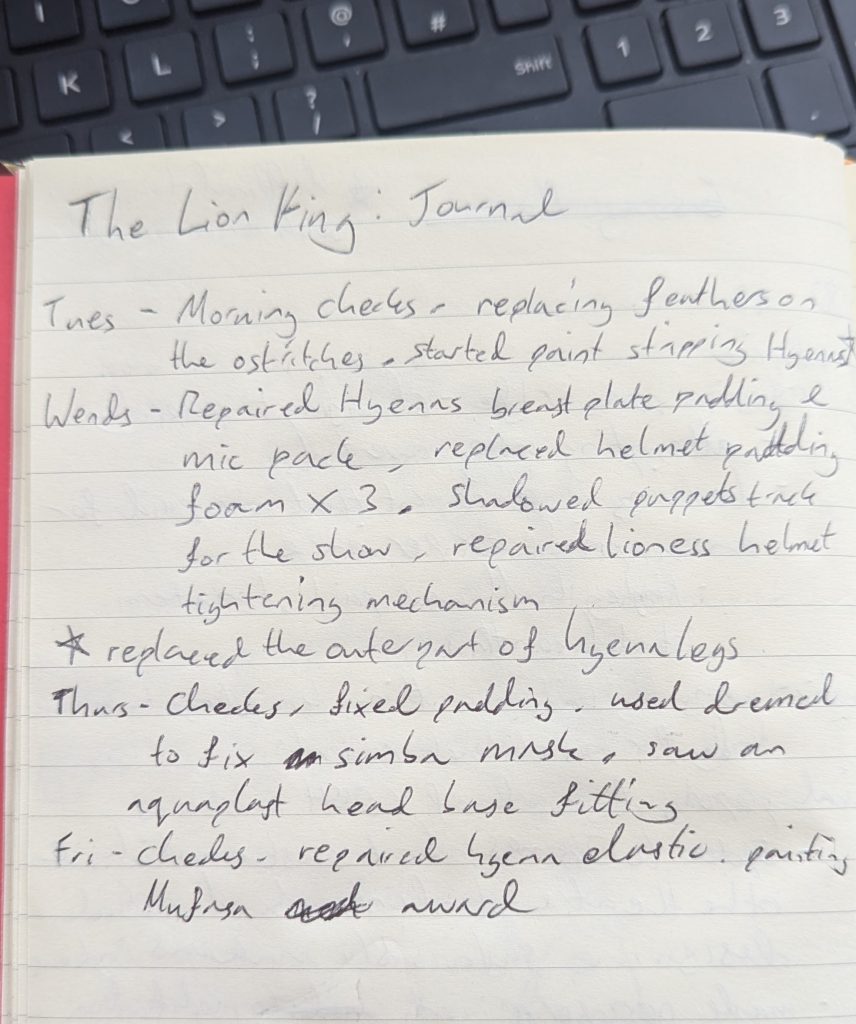 K L : ; @ ' # Shift 1 2 3
< > ? /
The Lion King: Journal
Tues - Morning checks, replacing feathers on
the ostritches, started paint stripping Hyenas*
Wends - Repaired Hyenas breast plate padding &
mic pack, replaced helmet padding
foam X 3. Shadowed puppets track
for the show, repaired lioness helmet
tightening mechanism
* replaced the outer part of hyena legs
Thurs - Checks, fixed padding. used dremel
to fix simba mask, saw an
aquaplast head base fitting
Fri - checks - repaired hyena elastic. painting
Mufasa award